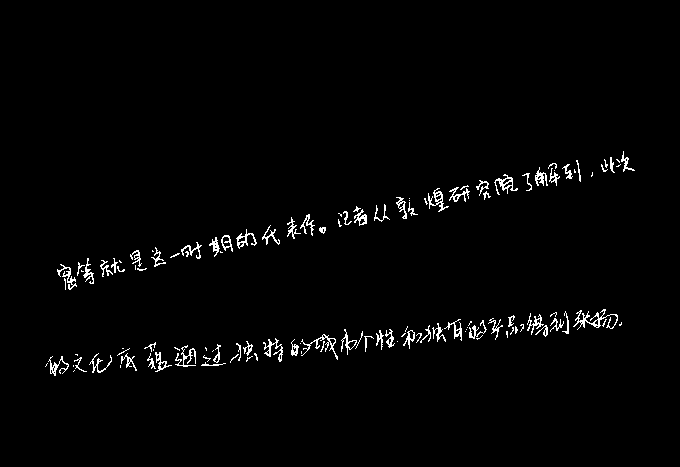 窟等就是这一时期的代表作。记者从敦煌研究院了解到，此次
的文化底蕴通过独特的城市个性和独有的产品得到张扬．